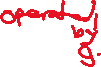 operated
by